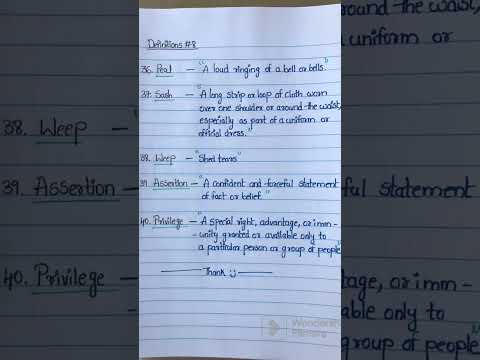 Definitions #8
36. Peal - "A loud ringing of a bell or bells."
37. Sash - "A long strip or loop of cloth worn
over one shoulder or around the waist,
especially as part of a uniform or
official dress."
38. Weep - "Shed tears"
39. Assertion - "A confident and forceful statement
of fact or belief."
40. Privilege - "A special right, advantage, or imm-
unity granted or available only to
a particular person or group of people"
Thank
around the waist,
a uniform or
38. Weep -
39. Assertion -
ful statement
40. Privilege -
tage, or imm-
able only to
group of people"